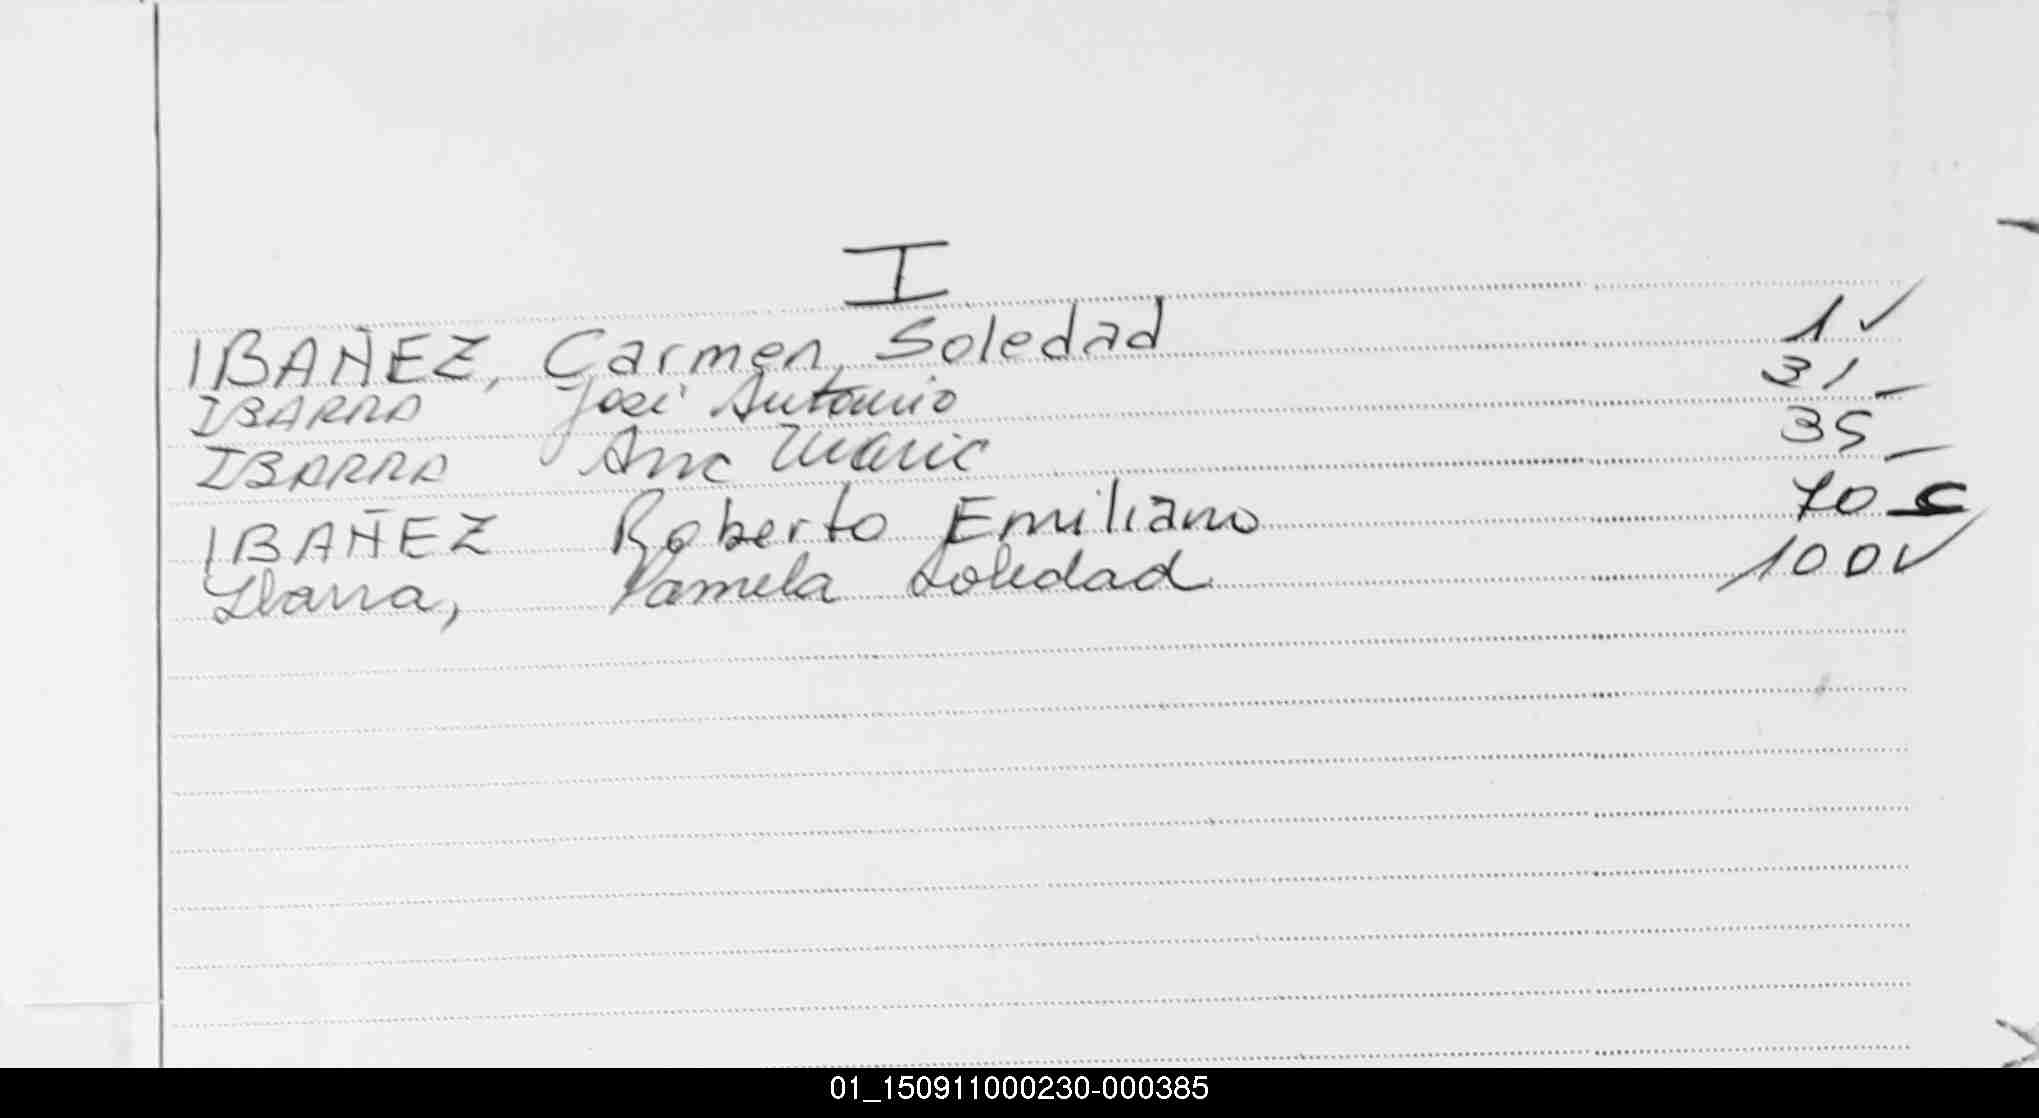 I
IBAÑEZ, Carmen Soledad 1 ✓
IBARRA José Antonio 31 -
IBARRA Ana Maria 35 -
IBAÑEZ Roberto Emiliano 70
Ibarra, Pamela Soledad 100 ✓
01_150911000230-000385